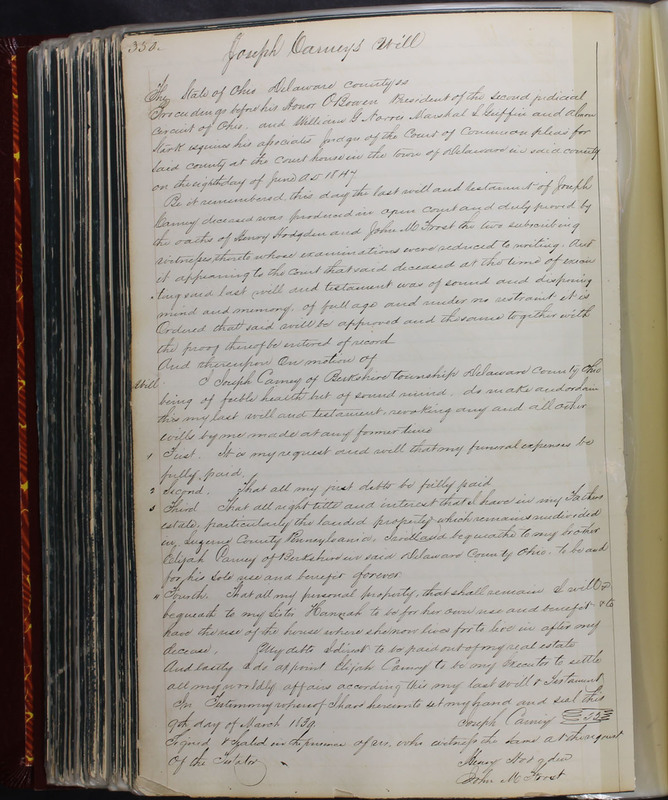 350.
Joseph Carneys Will
The State of Ohio Delaware County ss
Proceedings before his Honor O Bowen President of the second judicial
circuit of Ohio, and William G. Norris Marshal L Griffin and Almon
Stark esquires his associates Judges of the Court of Common pleas for
said county at the court house in the town of Delaware in said county
on the eighth day of June A.D 1847
Be it remembered, this day the last will and testament of Joseph
Carney deceased was produced in open court and duly proved by
the oaths of Henry Hodgden and John M Frost the two subscribing
witnesses thereto whose examinations were reduced to writing. And
it appearing to the court that said deceased at the time of execu
ting said last will and testament was of sound and disposing
mind and memory, of full age and under no restraint it is
Ordered that said will be approved and the same together with
the proof thereof be entered of record
And thereupon On motion of
Will. I Joseph Carney of Berkshire township Delaware County Ohio
being of feeble health but of sound mind, do make and ordain
this my last will and testament, revoking any and all other
wills by me made at any former time
1 First. It is my request and will that my funeral expenses be
fully paid.
2 Second. That all my just debts be fully paid
3 Third That all right title and interest that I have in my Fathers
estate, particularly the landed property which remains undivided
in Luzerne County Pennsylvania, I will and bequeathe to my brother
Elijah Carney of Berkshire in said Delaware County Ohio, to be and
for his sole use and benefit forever
4 Fourth. That all my personal property, that shall remain I will &
bequeath to my sister Hannah to be for her own use and benefit & to
have the use of the house where she now lives for to live in after my
decease, My debts I direct to be paid out of my real estate
And lastly I do appoint Elijah Carney to be my executor to settle
all my worldly affairs according this my last will & Testament
In Testimony whereof I have hereunto set my hand and seal this
9th day of March 1839 Joseph Carney
Signed & Sealed in the presence of us, who witness the same at the request
Of the Testator Henry Hodgden
John M Frost